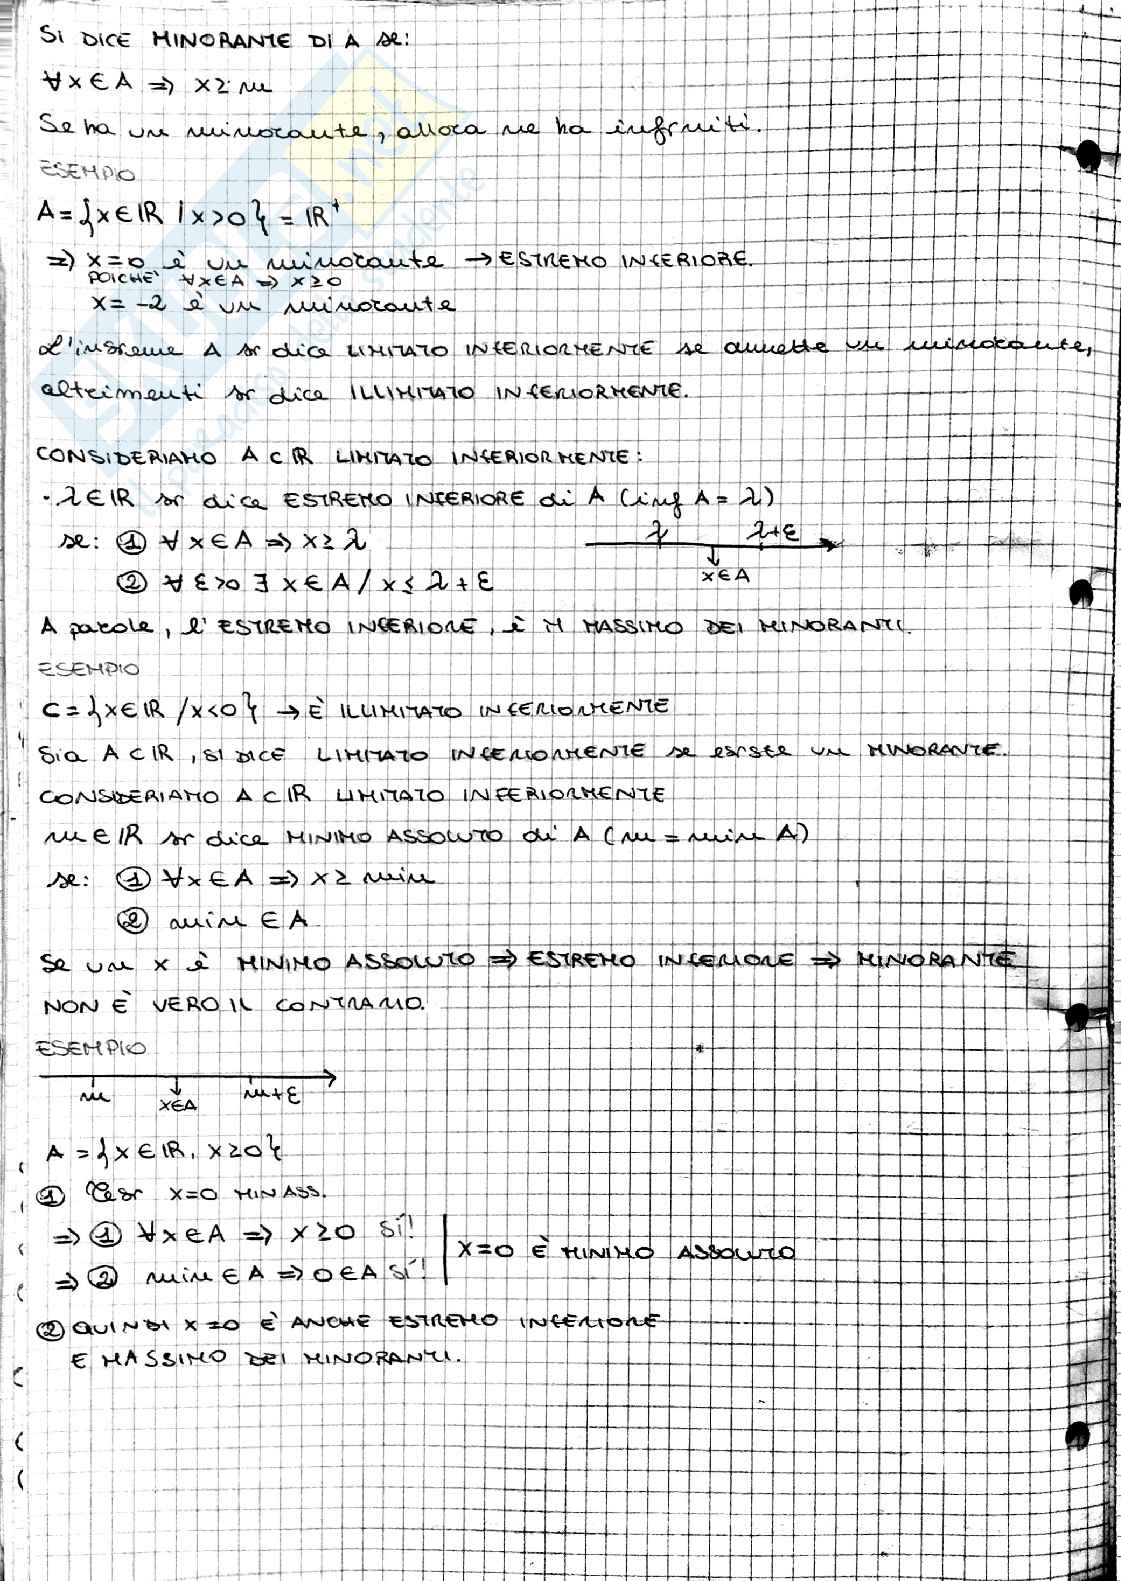 SI DICE MINORANTE DI A se:
∀x∈A ⇒ x≥m
Se ha un minorante, allora ne ha infiniti.
ESEMPIO
A={x∈IR | x>0} = IR⁺
⇒ x=0 è un minorante → ESTREMO INFERIORE.
POICHÈ ∀x∈A ⇒ x≥0
x=-2 è un minorante
L'insieme A si dice LIMITATO INFERIORMENTE se ammette un minorante,
altrimenti si dice ILLIMITATO INFERIORMENTE.
CONSIDERIAMO A⊂IR LIMITATO INFERIORMENTE:
· λ∈IR si dice ESTREMO INFERIORE di A (inf A = λ)
se: ① ∀x∈A ⇒ x≥λ
λ λ+ε
x∈A
② ∀ε>0 ∃ x∈A / x≤ λ+ε
A parole, l'ESTREMO INFERIORE, è il MASSIMO DEI MINORANTI.
ESEMPIO
C={x∈IR /x<0} → È ILLIMITATO INFERIORMENTE
Sia A⊂IR, SI DICE LIMITATO INFERIORMENTE se esiste un MINORANTE.
CONSIDERIAMO A⊂IR LIMITATO INFERIORMENTE
m∈IR si dice MINIMO ASSOLUTO di A (m=min A)
se: ① ∀x∈A ⇒ x≥ min
② min ∈A
Se un x è MINIMO ASSOLUTO ⇒ ESTREMO INFERIORE ⇒ MINORANTE
NON È VERO IL CONTRARIO.
ESEMPIO
m x∈A m+ε
A ={x∈IR, x≥0}
① Tesi x=0 MIN ASS.
⇒ ① ∀x∈A ⇒ x≥0 SÌ!
⇒ ② min∈A ⇒ 0∈A SÌ!
x=0 È MINIMO ASSOLUTO
② QUINDI x=0 È ANCHE ESTREMO INFERIORE
E MASSIMO DEI MINORANTI.